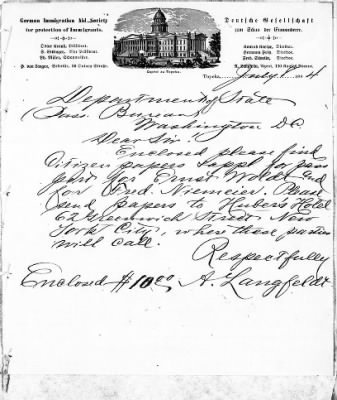 German Immigration Aid Society
for protection of Immigrants.
Deutsche Gesellschaft
zum Schutz der Einwanderer.
Capitol zu Topeka.
Topeka, July 8 1884
Department of State
Pass. Bureau
Washington D.C.
Dear Sir:
Enclosed please find
Citizen papers & appl for pass
port for Ernst Wolde and
for Fred. Niemeier. Please
send papers to Huber's Hotel
62 Greenwich Street New
York City, where these parties
will call.
Respectfully
Enclosed $10.00 A. Langfeldt